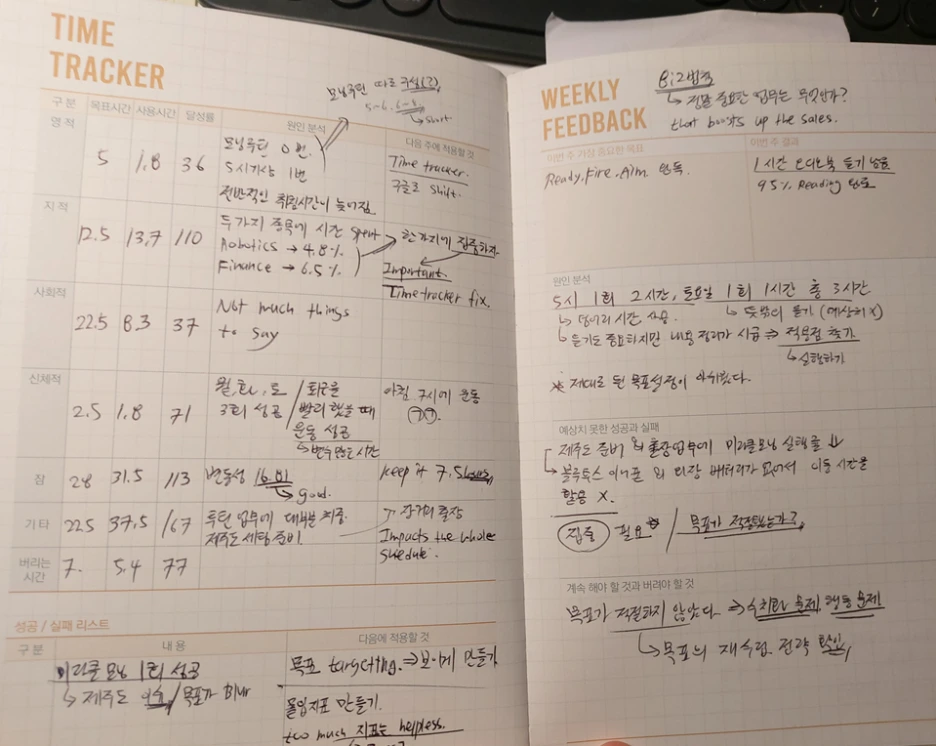 TIME
TRACKER
모닝루틴 따로 구성(?)
5-6. 6-8
short
구분 목표시간 사용시간 달성률 원인 분석 다음 주에 적용할 것
영적
5 1.8 36
모닝루틴 0번.
5시기상 1번
전반적인 취침시간이 늦어짐.
Time tracker.
구글로 shift.
지적
12.5 13.7 110
두가지 종목에 시간 spent
Robotics → 4.8%
Finance → 6.5%
한가지에 집중하자.
Important.
Time tracker fix.
사회적
22.5 8.3 37
Not much things
to say
신체적
2.5 1.8 71
월, 화, 토
3회 성공
퇴근을
빨리 했을 때
운동 성공
아침 7시에 운동
잠
28 31.5 113
변동성
good.
keep it 7.5hours
기타
22.5 37.5 167
루틴 업무에 대부분 치중.
제주도 세팅 준비.
→ 장거리 출장
Impacts the whole
shedule.
버리는
시간
7. 5.4 77
성공 / 실패 리스트
구분 내 용 다음에 적용할 것
미라클모닝 1회 성공
↳ 제주도 / 목표가
목표 targeting. ⇒ 보이게 만들기
몰입지표 만들기.
too much 지표는 helpless.
WEEKLY
FEEDBACK
8:2법칙
↳ 정말 중요한 업무는 무엇인가?
that boosts up the sales.
이번 주 가장 중요한 목표
Ready, Fire, Aim 완독.
이번 주 결과
1시간 오디오북 듣기 남음
95% Reading 완료
원인 분석
5시 1회 2시간, 토요일 1회 1시간 총 3시간
↳ 덩어리 시간 사용
↳ 뜻밖의 듣기 (예상치X)
↳ 듣기도 중요하지만 내용 정리가 시급 ⇒ 적용점 찾기
↳ 실행하기
* 제대로 된 목표설정이 아쉬웠다.
예상치 못한 성공과 실패
제주도 준비 와 출장업무에 미라클모닝 실행률 ↓↓
블루투스 이어폰 의 다량 배터리가 없어서 이동 시간을
활용 X.
집중 필요 / 목표가 적절했는가?
계속 해야 할 것과 버려야 할 것
목표가 적절하지 않았다. ⇒ 수치화 문제, 행동 문제
↳ 목표의 재수립. 전략 확인,